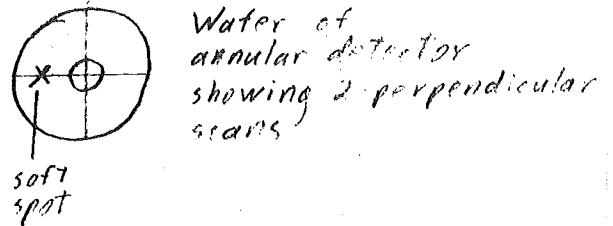 Wafer of
annular detector
showing 2 perpendicular
scans
soft
spot